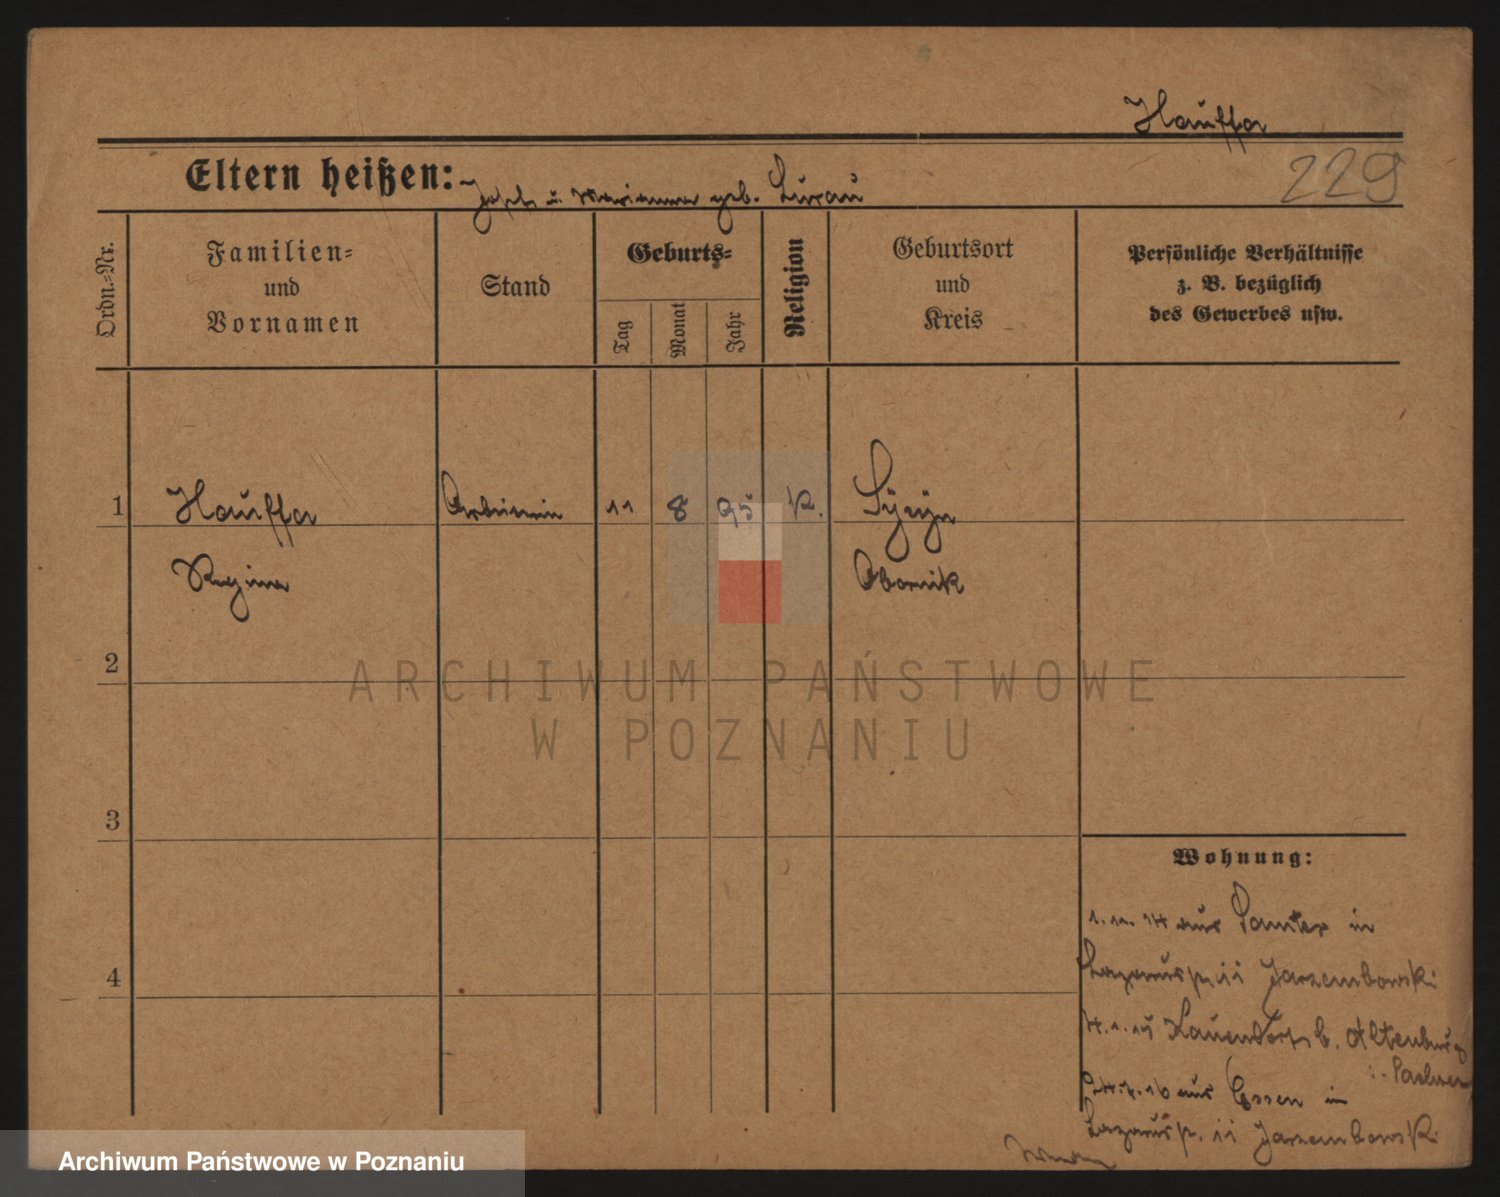 Hauffa
229
Eltern heißen:
Joseph u. Marianna geb. Lurau
Ordn.-Nr.
Familien-
und
Vornamen
Stand
Geburts-
Tag
Monat
Jahr
Religion
Geburtsort
und
Kreis
Persönliche Verhältnisse
z. B. bezüglich
des Gewerbes usw.
1 Hauffa Arbeiterin 11 8 95 K.
Regina Obornik
2
3
4
Wohnung:
1. 14 aus Samter in
Jarzembowski
Kauendorf b. Altenburg
Sachsen
16 aus Essen in
Lazarusstr. 11 Jarzembowski
ARCHIWUM PAŃSTWOWE
W POZNANIU
Archiwum Państwowe w Poznaniu